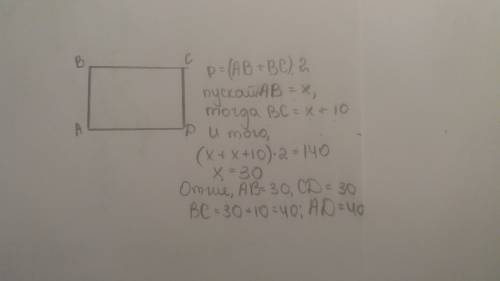 B C
A D
p=(AB+BC)·2
пускай AB = x,
тогда BC = x + 10
и того,
(x + x+10)·2=140
x = 30
AB=30, CD = 30
BC = 30+10=40; AD=40